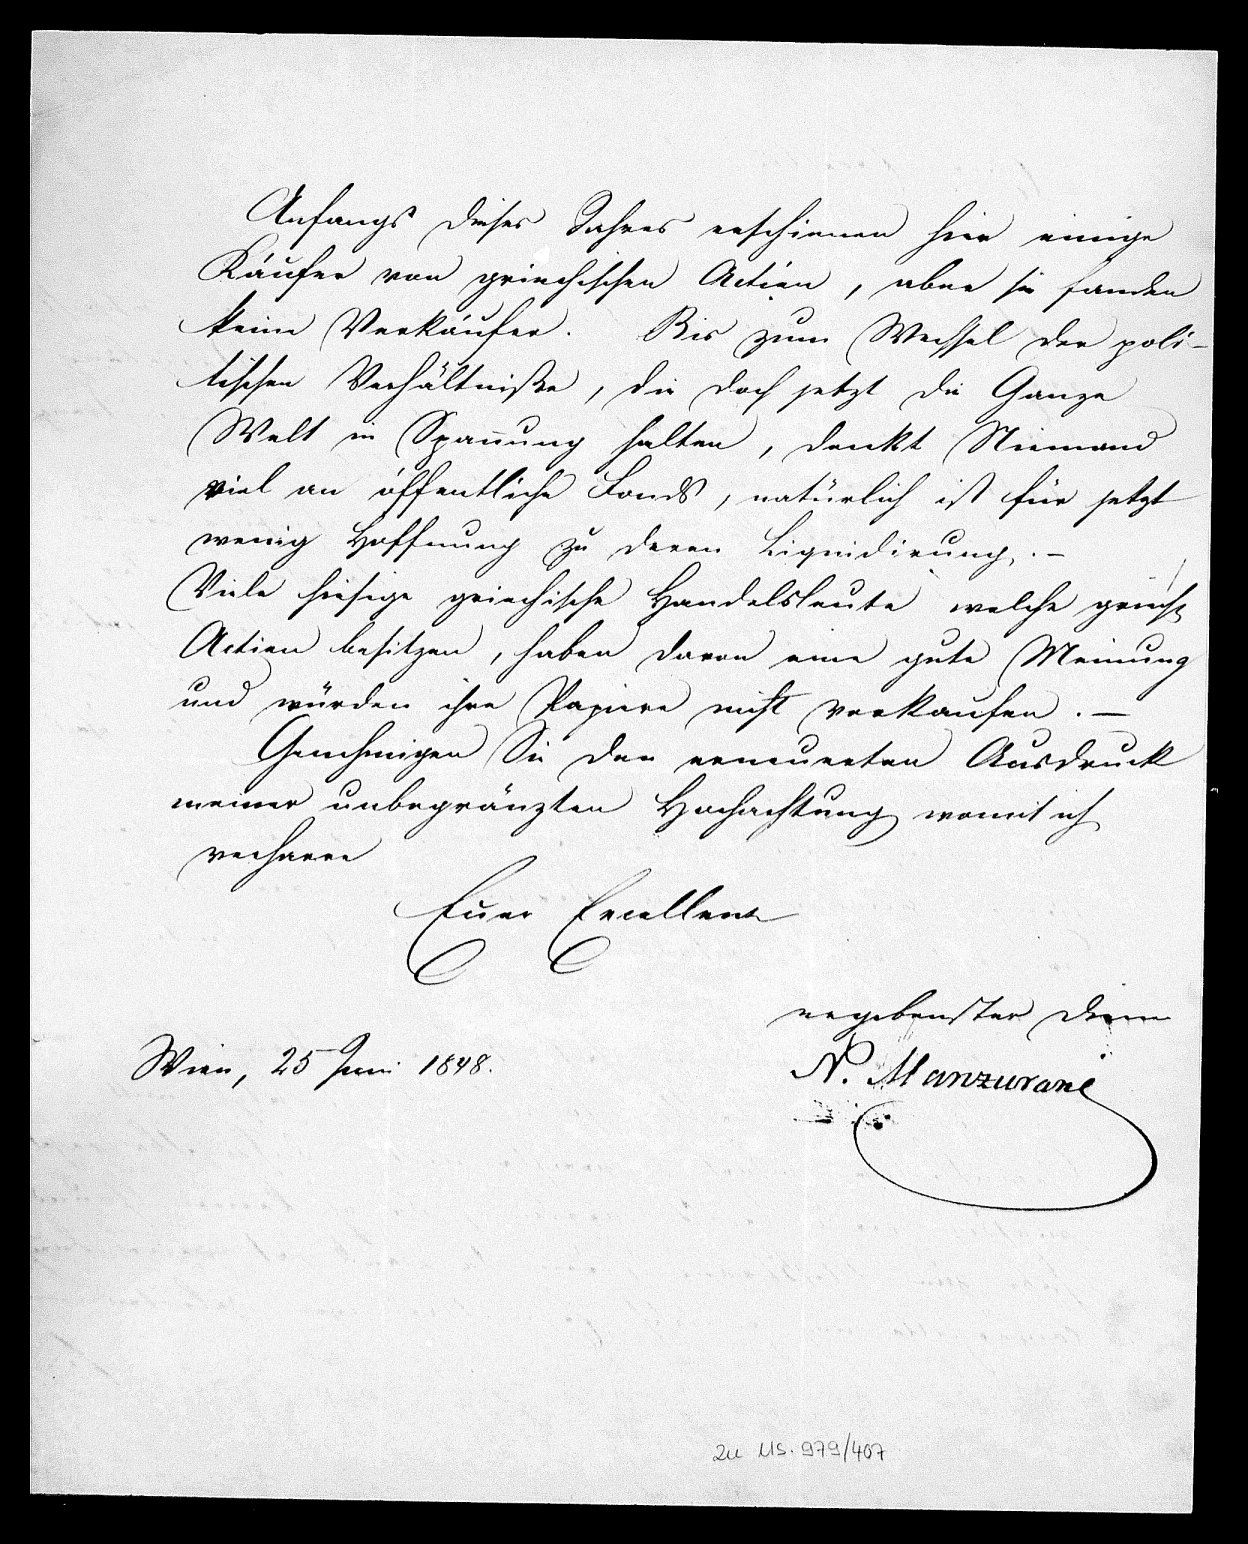 Anfangs dieses Jahres erschienen hier einige
Käufer von griechischen Actien, aber sie fanden
keine Verkäufer. Bis zum Wechsel der poli-
tischen Verhältniße, die doch jetzt die Ganze
Welt in Spannung halten, denkt Niemand
viel an öffentliche Fonds, natürlich ist für jetzt
wenig Hoffnung zu deren Liquidirung. –
Viele hiesige griechische Handelsleute welche griech
Actien besitzen, haben davon eine gute Meinung
und würden ihre Papiere nicht verkaufen. –
Genehmigen Sie den erneuerten Ausdruck
meiner unbegränzten Hochachtung womit ich
verharre
Euer Excellenz
ergebenster Diener
Wien, 25 Juni 1848.
N. Manzurani
zu MS. 979/407